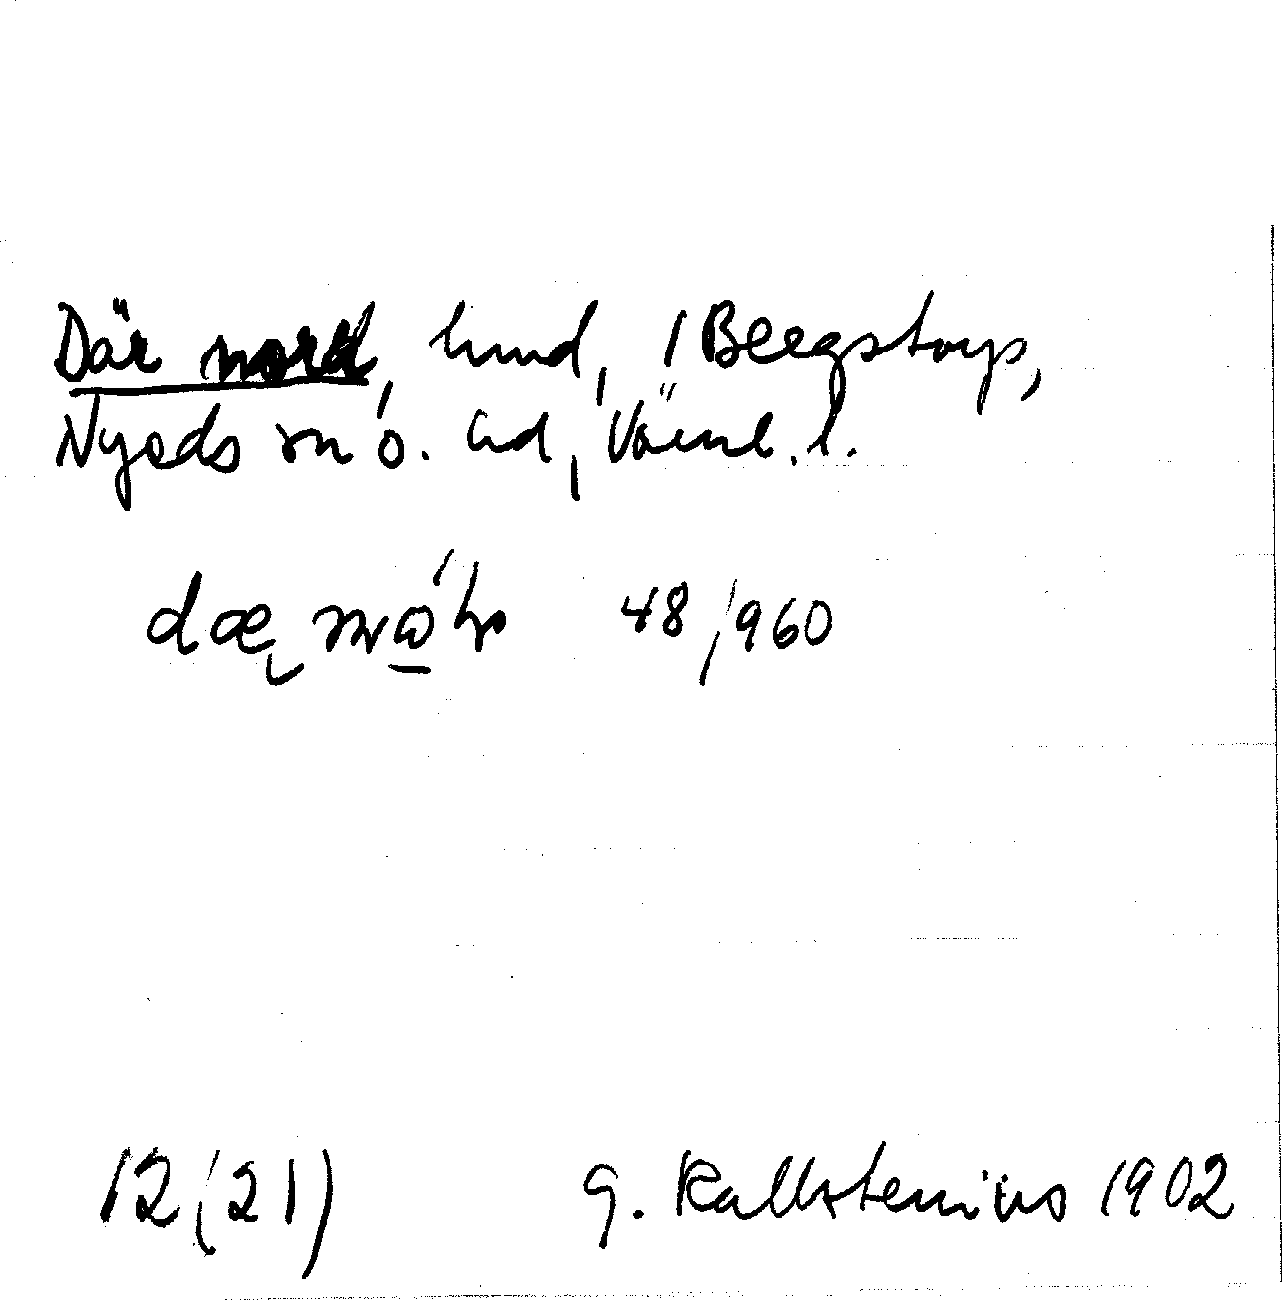 Där nord, hmd, i Bergstorp,
Nyeds sn o. hd, Värml. l.
48/960
12 (21) G. Kallstenius 1902